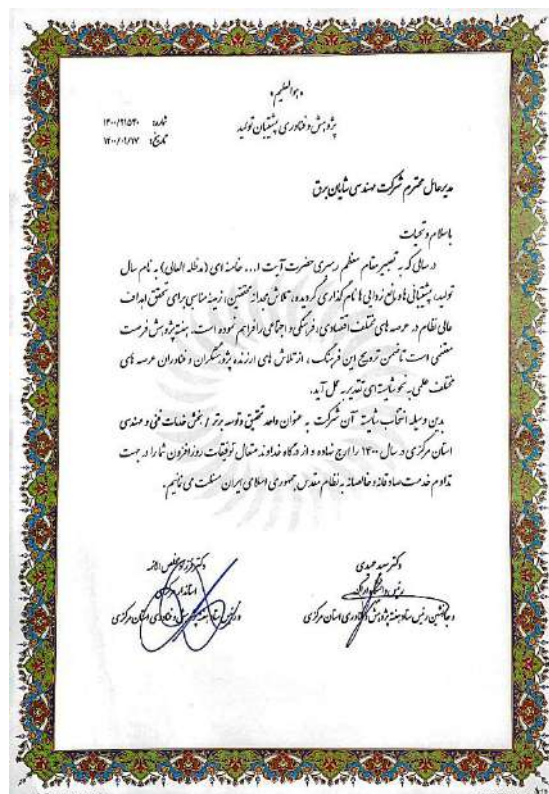 هوالعلیم
پژوهش و فناوری پشتیبان تولید
شماره: ۱۴۰۰/۹۱۵۴۰
تاریخ: ۱۴۰۰/۰۹/۱۷
مدیرعامل محترم شرکت مهندسی شایان برق
باسلام و تحیات
در سالی که به تعبیر مقام معظم رهبری حضرت آیت ا... خامنه ای (مدظله العالی) به نام سال
تولید، پشتیبانی ها و مانع زدایی ها نام گذاری گردیده، تلاش مجدانه محققین، زمینه مناسبی برای تحقق اهداف
عالی نظام در عرصه های مختلف اقتصادی، فرهنگی و اجتماعی را فراهم نموده است. هفته پژوهش فرصت
مغتنمی است تا ضمن ترویج این فرهنگ، از تلاش های ارزنده پژوهشگران و فناوران عرصه های
مختلف علمی به نحو شایسته ای تقدیر به عمل آید.
بدین وسیله انتخاب شایسته آن شرکت به عنوان واحد تحقیق و توسعه برتر بخش خدمات فنی و مهندسی
استان مرکزی در سال ۱۴۰۰ را ارج نهاده و از درگاه خداوند متعال توفیقات روزافزون شما را در جهت
تداوم خدمت صادقانه و خالصانه به نظام مقدس جمهوری اسلامی ایران مسئلت می نمائیم.
دکتر سعید حمیدی
رئیس دانشگاه اراک
و جانشین رئیس ستاد هفته پژوهش و فناوری استان مرکزی
دکتر فرزاد مخلص الائمه
استاندار مرکزی
و رئیس ستاد هفته پژوهش و فناوری استان مرکزی